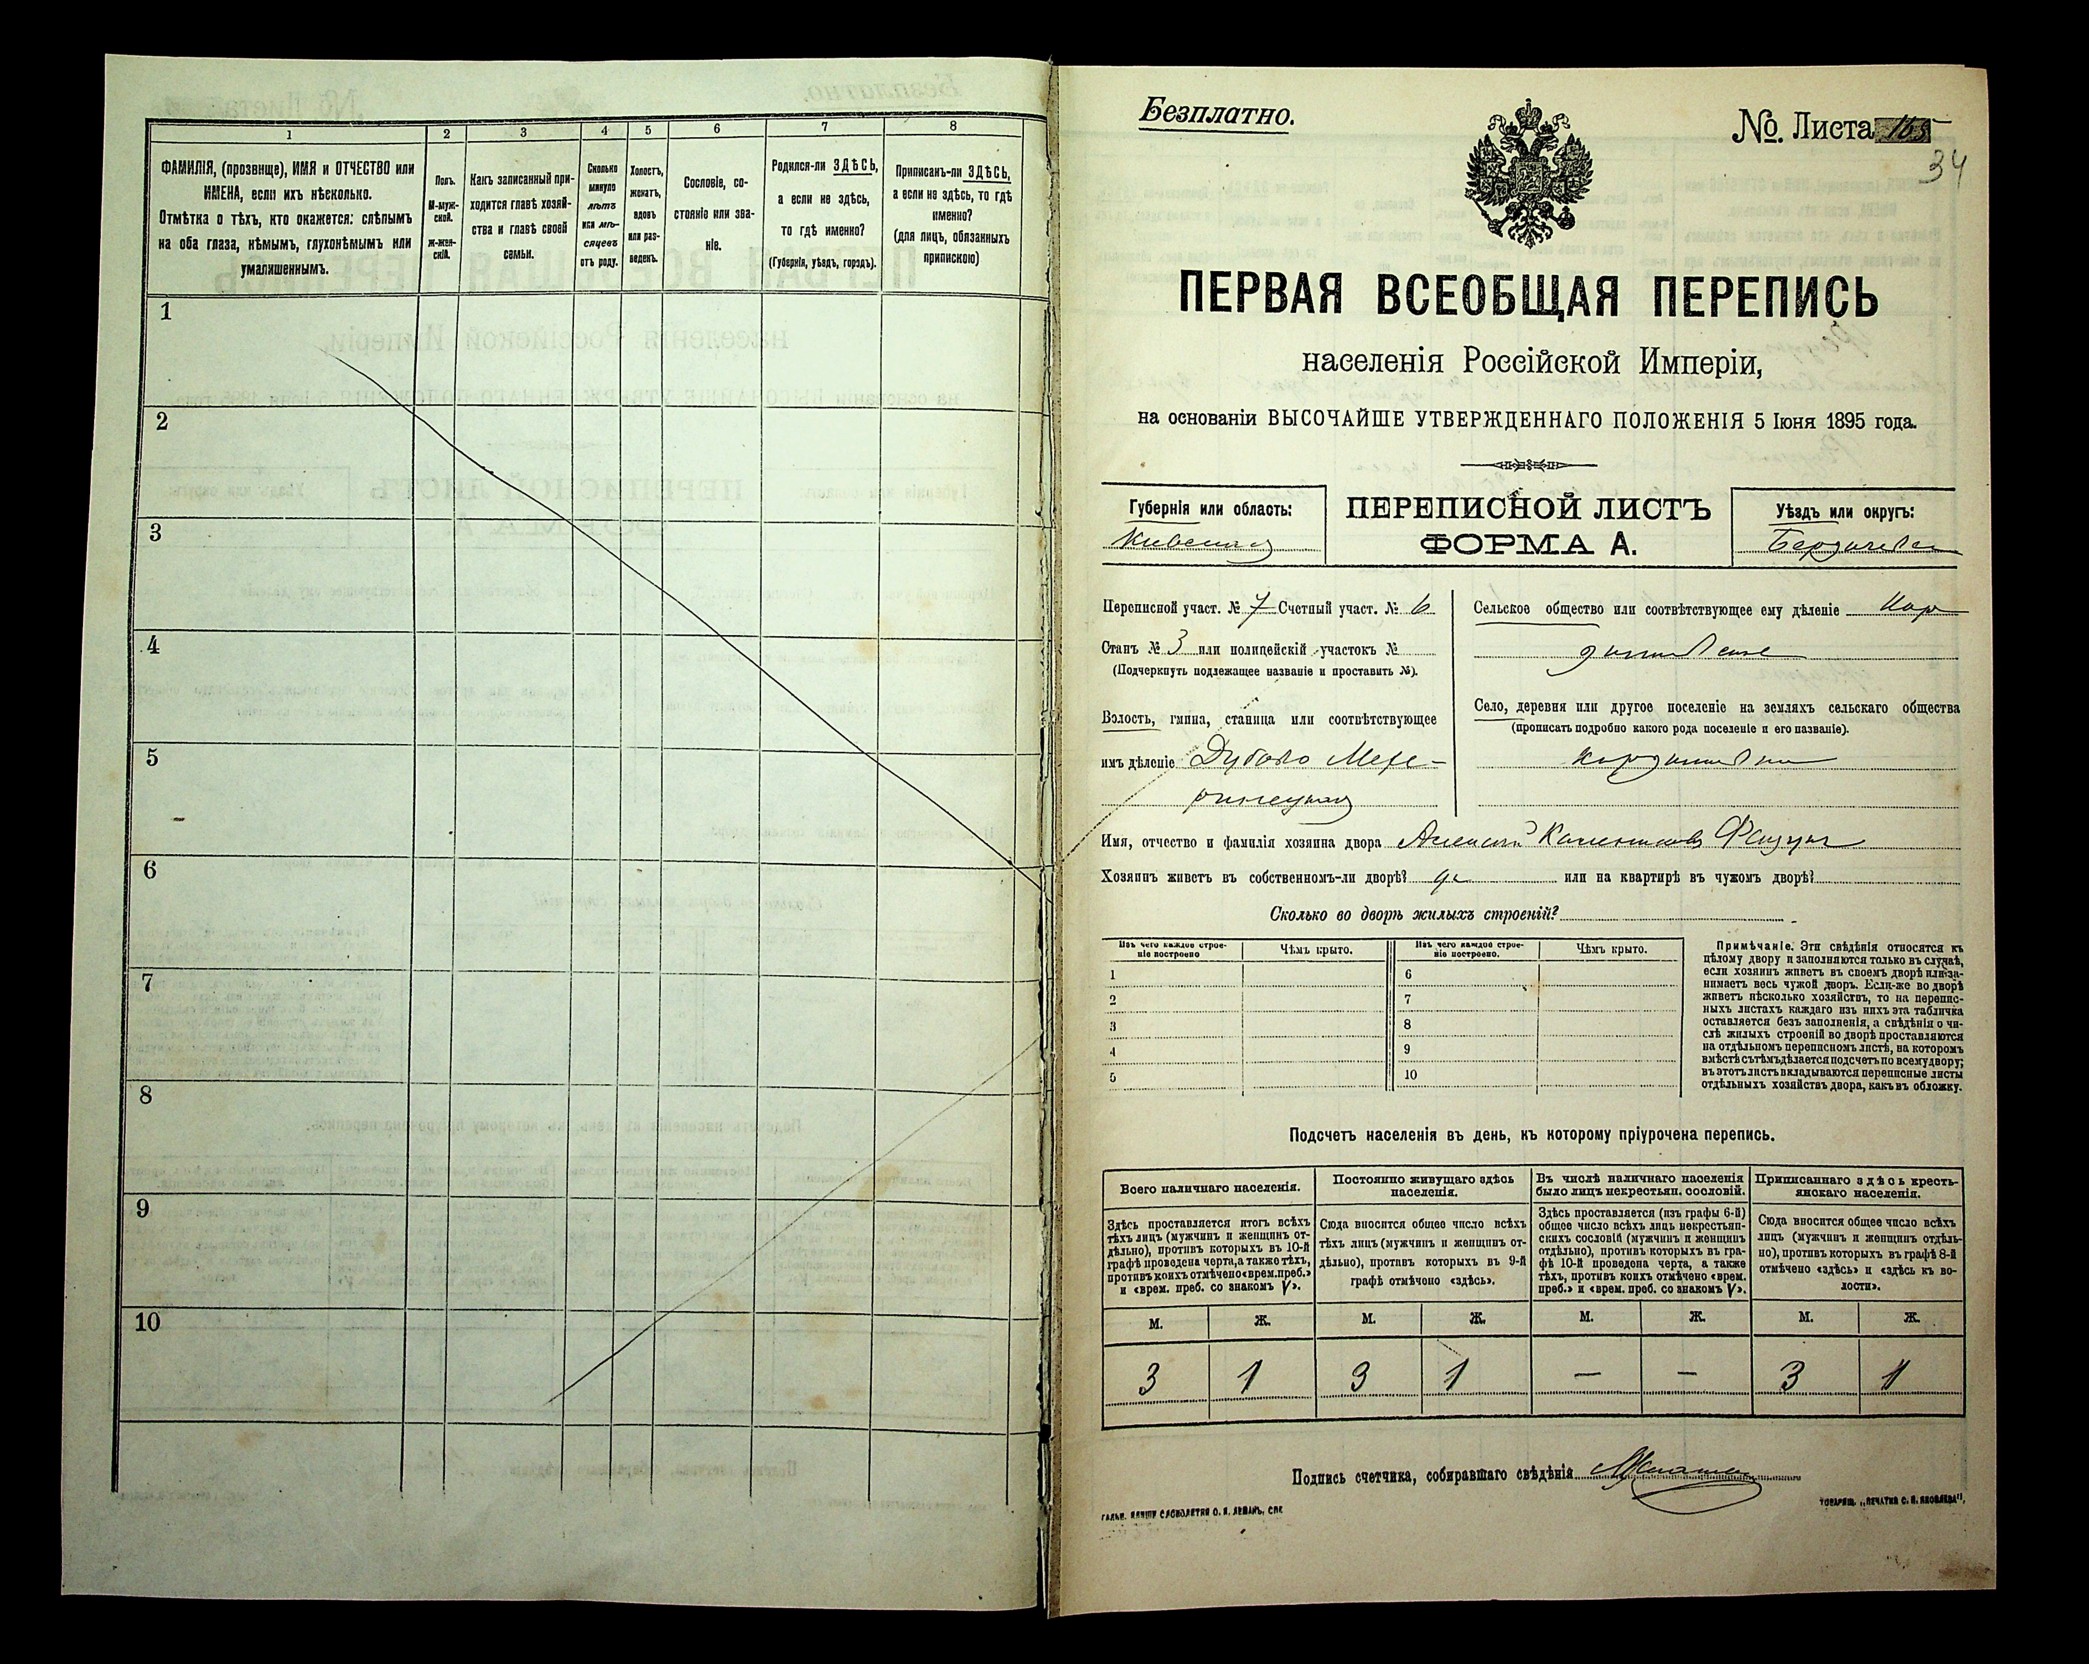 1
2
3
4
5
6
7
8
ФАМИЛІЯ, (прозвище), ИМЯ и ОТЧЕСТВО или
ИМЕНА, если ихъ нѣсколько.
Отмѣтка о тѣхъ, кто окажется: слѣпымъ
на оба глаза, нѣмымъ, глухонѣмымъ или
умалишеннымъ.
Полъ.
М-муж-
ской.
ж-жен-
скій.
Какъ записанный при-
ходится главѣ хозяй-
ства и главѣ своей
семьи.
Сколько
минуло
лѣтъ
или мѣ-
сяцевъ
отъ роду.
Холостъ,
женатъ,
вдовъ
или раз-
веденъ.
Сословіе, со-
стояніе или зва-
ніе.
Родился-ли ЗДѢСЬ,
а если не здѣсь,
то гдѣ именно?
(Губернія, уѣздъ, городъ).
Приписанъ-ли ЗДѢСЬ,
а если не здѣсь, то гдѣ
именно?
(для лицъ, обязанныхъ
припискою)
1
2
3
4
5
6
7
8
9
10
Безплатно.
№ Листа 165
34
ПЕРВАЯ ВСЕОБЩАЯ ПЕРЕПИСЬ
населенія Россійской Имперіи,
на основаніи ВЫСОЧАЙШЕ УТВЕРЖДЕННАГО ПОЛОЖЕНІЯ 5 Іюня 1895 года.
Губернія или область:
Кіевская
ПЕРЕПИСНОЙ ЛИСТЪ
ФОРМА А.
Уѣздъ или округъ:
Бердичевск
Переписной участ. № 7 Счетный участ. № 6
Станъ № 3 или полицейскій участокъ №
(Подчеркнуть подлежащее названіе и проставить №).
Волость, гмина, станица или соотвѣтствующее
имъ дѣленіе Дубово Мехе-
ринецкая
Сельское общество или соотвѣтствующее ему дѣленіе Кор
дишевское
Село, деревня или другое поселеніе на земляхъ сельскаго общества
(прописать подробно какого рода поселеніе и его названіе).
Кордишевка
Имя, отчество и фамилія хозяина двора Алексѣй
Хозяинъ живетъ въ собственномъ-ли дворѣ? да или на квартирѣ въ чужомъ дворѣ?
Сколько во дворѣ жилыхъ строеній?
Изъ чего каждое строе-
ніе построено
Чѣмъ крыто.
1
2
3
4
5
Изъ чего каждое строе-
ніе построено.
Чѣмъ крыто.
6
7
8
9
10
Примѣчаніе. Эти свѣдѣнія относятся къ
цѣлому двору и заполняются только въ случаѣ,
если хозяинъ живетъ въ своемъ дворѣ или за-
нимаетъ весь чужой дворъ. Если-же во дворѣ
живетъ нѣсколько хозяйствъ, то на перепис-
ныхъ листахъ каждаго изъ нихъ эта табличка
оставляется безъ заполненія, а свѣдѣнія о чи-
слѣ жилыхъ строеній во дворѣ проставляются
на отдѣльномъ переписномъ листѣ, на которомъ
вмѣстѣ съ тѣмъ дѣлается подсчетъ по всему двору;
въ этотъ листъ вкладываются переписные листы
отдѣльныхъ хозяйствъ двора, какъ въ обложку.
Подсчетъ населенія въ день, къ которому пріурочена перепись.
Всего наличнаго населенія.
Здѣсь проставляется итогъ всѣхъ
тѣхъ лицъ (мужчинъ и женщинъ от-
дѣльно), противъ которыхъ въ 10-й
графѣ проведена черта, а также тѣхъ,
противъ коихъ отмѣчено «врем. преб.»
и «врем. преб. со знакомъ V».
М.
Ж.
3
1
Постоянно живущаго здѣсь
населенія.
Сюда вносится общее число всѣхъ
тѣхъ лицъ (мужчинъ и женщинъ от-
дѣльно), противъ которыхъ въ 9-й
графѣ отмѣчено «здѣсь».
М.
Ж.
3
1
Въ числѣ наличнаго населенія
было лицъ некрестьян. сословій.
Здѣсь проставляется (изъ графы 6-й)
общее число всѣхъ лицъ некрестьян-
скихъ сословій (мужчинъ и женщинъ
отдѣльно), противъ которыхъ въ гра-
фѣ 10-й проведена черта, а также
тѣхъ, противъ коихъ отмѣчено «врем.
преб.» и «врем. преб. со знакомъ V».
М.
Ж.
—
—
Приписаннаго здѣсь кресть-
янскаго населенія.
Сюда вносится общее число всѣхъ
лицъ (мужчинъ и женщинъ отдѣль-
но), противъ которыхъ въ графѣ 8-й
отмѣчено «здѣсь» и «здѣсь къ во-
лости».
М.
Ж.
3
1
Подпись счетчика, собиравшаго свѣдѣнія
ТОВАРИЩ. „ПЕЧАТНЯ С. П. ЯКОВЛЕВА",